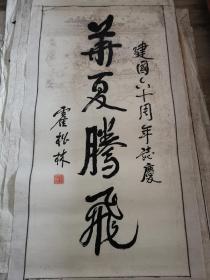 建國六十周年誌慶
華夏騰飛
霍松林